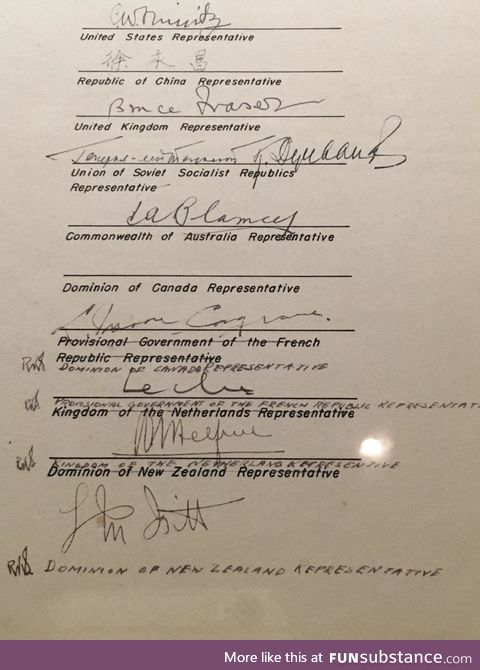 C.W. Nimitz
United States Representative
徐永昌
Republic of China Representative
Bruce Fraser
United Kingdom Representative
Генерал-лейтенант К. Деревянко
Union of Soviet Socialist Republics
Representative
T.A. Blamey
Commonwealth of Australia Representative
Dominion of Canada Representative
L. Moore Cosgrave
Provisional Government of the French
Republic Representative
DOMINION OF CANADA REPRESENTATIVE
Leclerc
PROVISIONAL GOVERNMENT OF THE FRENCH REPUBLIC REPRESENTATIVE
Kingdom of the Netherlands Representative
Helfrich
KINGDOM OF THE NETHERLANDS REPRESENTATIVE
Dominion of New Zealand Representative
L M Isitt
DOMINION OF NEW ZEALAND REPRESENTATIVE
More like this at FUNsubstance.com